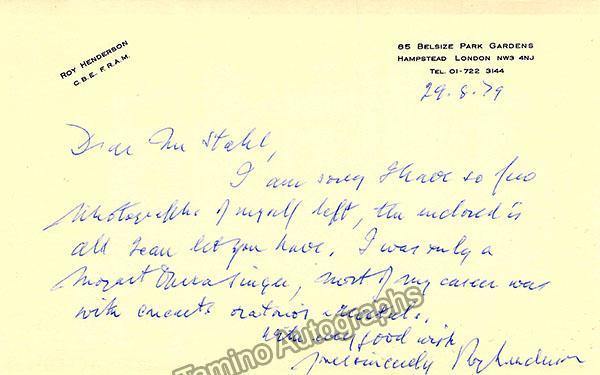 ROY HENDERSON
C.B.E. F.R.A.M.
85 BELSIZE PARK GARDENS
HAMPSTEAD LONDON NW3 4NJ
TEL. 01-722 3144
29.8.79
Dear Mr Stahl,
I am sorry I have so few
photographs of myself left, the enclosed is
all I can let you have. I was only a
Mozart Opera Singer, most of my career was
with concerts oratorios recitals.
With every good wish
yours sincerely Roy Henderson
Tamino Autographs